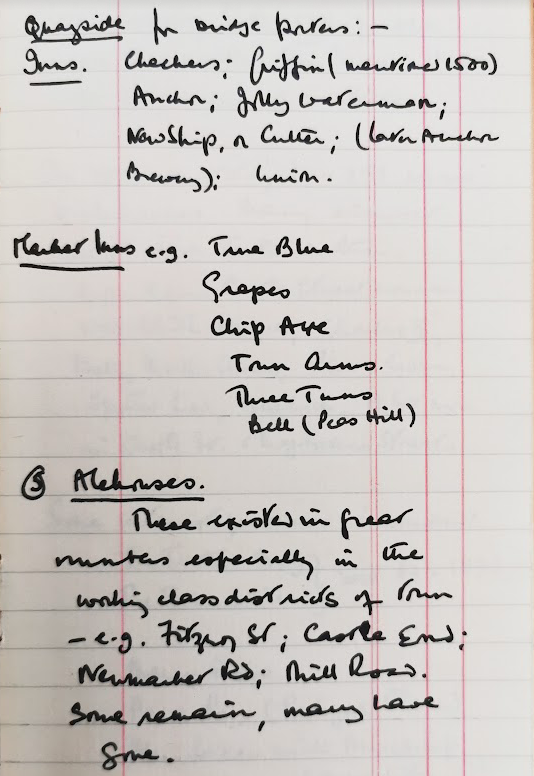 Quayside for bridge porters:-
Inns. Checkers; Griffin (mentioned 1500)
Anchor; Jolly Waterman;
New Ship, or Cutter; (later Anchor
Brewery); Union.
Market Inns e.g. True Blue
Grapes
Chip Axe
Town Arms.
Three Tuns
Bell (Peas Hill)
③ Alehouses.
These existed in great
numbers especially in the
working class districts of town
- e.g. Fitzroy St; Castle End;
Newmarket Rd; Mill Road.
Some remain, many have
gone.